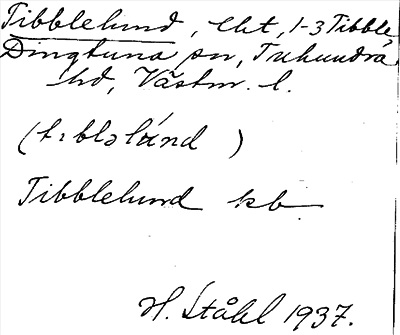 Tibblelund, lht, 1-3 Tibble,
Dingtuna sn, Tuhundra
hd, Västm. l.
(tɪbləlúnd )
Tibblelund kb
H. Ståhl 1937.